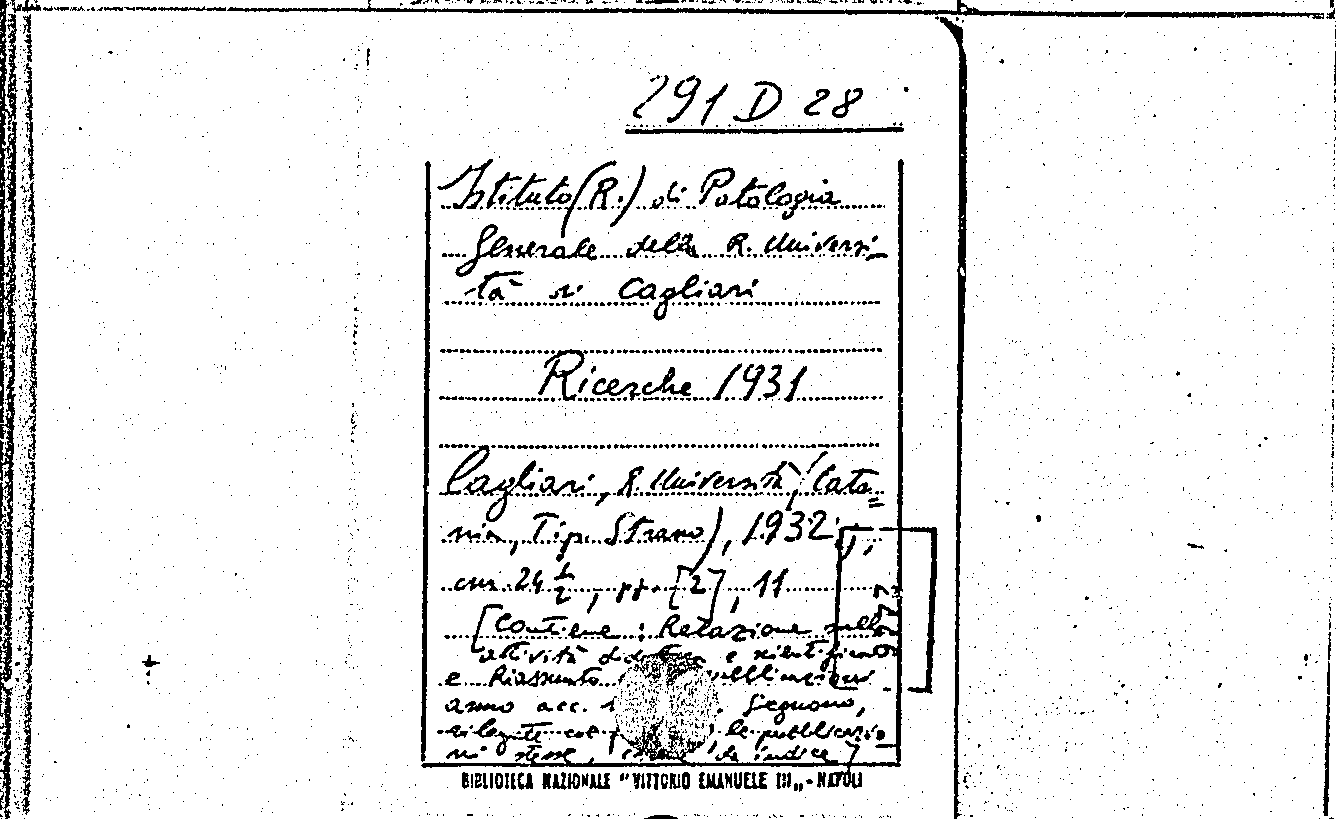 291 D 28
Istituto (R.) di Patologia
Generale della R. Universi-
tà di Cagliari
Ricerche 1931
Cagliari, R. Università (Cata=
nia, Tip. Strano), 1932,
cm. 24 1/2, pp. [2], 11
[Contiene: Relazione sulla
attività e scientifica
e Riassunto pubblicazioni
anno acc. Seguono,
rilegate col le pubblicazio-
ni stesse, come da indice]
BIBLIOTECA NAZIONALE "VITTORIO EMANUELE III„ - NAPOLI